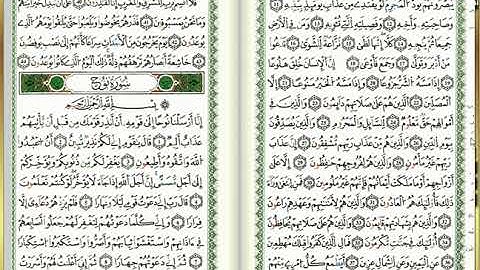 يُبَصَّرُونَهُمْ يَوَدُّ ٱلْمُجْرِمُ لَوْ يَفْتَدِى مِنْ عَذَابِ يَوْمِئِذٍۭ بِبَنِيهِ ١١
وَصَٰحِبَتِهِۦ وَأَخِيهِ ١٢ وَفَصِيلَتِهِ ٱلَّتِى تُـْٔوِيهِ ١٣ وَمَن فِى ٱلْأَرْضِ
جَمِيعًا ثُمَّ يُنجِيهِ ١٤ كَلَّآ إِنَّهَا لَظَىٰ ١٥ نَزَّاعَةً لِّلشَّوَىٰ ١٦ تَدْعُوا۟
مَنْ أَدْبَرَ وَتَوَلَّىٰ ١٧ وَجَمَعَ فَأَوْعَىٰٓ ١٨ إِنَّ ٱلْإِنسَٰنَ خُلِقَ هَلُوعًا
١٩ إِذَا مَسَّهُ ٱلشَّرُّ جَزُوعًا ٢٠ وَإِذَا مَسَّهُ ٱلْخَيْرُ مَنُوعًا ٢١ إِلَّا
ٱلْمُصَلِّينَ ٢٢ ٱلَّذِينَ هُمْ عَلَىٰ صَلَاتِهِمْ دَآئِمُونَ ٢٣ وَٱلَّذِينَ فِىٓ
أَمْوَٰلِهِمْ حَقٌّ مَّعْلُومٌ ٢٤ لِّلسَّآئِلِ وَٱلْمَحْرُومِ ٢٥ وَٱلَّذِينَ يُصَدِّقُونَ
بِيَوْمِ ٱلدِّينِ ٢٦ وَٱلَّذِينَ هُم مِّنْ عَذَابِ رَبِّهِم مُّشْفِقُونَ ٢٧ إِنَّ عَذَابَ
رَبِّهِمْ غَيْرُ مَأْمُونٍ ٢٨ وَٱلَّذِينَ هُمْ لِفُرُوجِهِمْ حَٰفِظُونَ ٢٩ إِلَّا عَلَىٰٓ
أَزْوَٰجِهِمْ أَوْ مَا مَلَكَتْ أَيْمَٰنُهُمْ فَإِنَّهُمْ غَيْرُ مَلُومِينَ ٣٠ فَمَنِ ٱبْتَغَىٰ وَرَآءَ
ذَٰلِكَ فَأُو۟لَٰٓئِكَ هُمُ ٱلْعَادُونَ ٣١ وَٱلَّذِينَ هُمْ لِأَمَٰنَٰتِهِمْ وَعَهْدِهِمْ رَٰعُونَ
٣٢ وَٱلَّذِينَ هُم بِشَهَٰدَٰتِهِمْ قَآئِمُونَ ٣٣ وَٱلَّذِينَ هُمْ عَلَىٰ صَلَاتِهِمْ يُحَافِظُونَ
٣٤ أُو۟لَٰٓئِكَ فِى جَنَّٰتٍ مُّكْرَمُونَ ٣٥ فَمَالِ ٱلَّذِينَ كَفَرُوا۟ قِبَلَكَ مُهْطِعِينَ
٣٦ عَنِ ٱلْيَمِينِ وَعَنِ ٱلشِّمَالِ عِزِينَ ٣٧ أَيَطْمَعُ كُلُّ ٱمْرِئٍ مِّنْهُمْ
فَلَآ أُقْسِمُ بِرَبِّ ٱلْمَشَٰرِقِ وَٱلْمَغَٰرِبِ إِنَّا لَقَٰدِرُونَ ٤٠ عَلَىٰٓ أَن نُّبَدِّلَ خَيْرًا
مِّنْهُمْ وَمَا نَحْنُ بِمَسْبُوقِينَ ٤١ فَذَرْهُمْ يَخُوضُوا۟ وَيَلْعَبُوا۟ حَتَّىٰ يُلَٰقُوا۟ يَوْمَهُمُ ٱلَّذِى
يُوعَدُونَ ٤٢ يَوْمَ يَخْرُجُونَ مِنَ ٱلْأَجْدَاثِ سِرَاعًا كَأَنَّهُمْ إِلَىٰ نُصُبٍ يُوفِضُونَ
٤٣ خَٰشِعَةً أَبْصَٰرُهُمْ تَرْهَقُهُمْ ذِلَّةٌ ذَٰلِكَ ٱلْيَوْمُ ٱلَّذِى كَانُوا۟ يُوعَدُونَ ٤٤
سُورَةُ نُوحٍ
بِسْمِ ٱللَّهِ ٱلرَّحْمَٰنِ ٱلرَّحِيمِ
إِنَّآ أَرْسَلْنَا نُوحًا إِلَىٰ قَوْمِهِۦٓ أَنْ أَنذِرْ قَوْمَكَ مِن قَبْلِ أَن يَأْتِيَهُمْ
عَذَابٌ أَلِيمٌ ١ قَالَ يَٰقَوْمِ إِنِّى لَكُمْ نَذِيرٌ مُّبِينٌ ٢ أَنِ ٱعْبُدُوا۟
ٱللَّهَ وَٱتَّقُوهُ وَأَطِيعُونِ ٣ يَغْفِرْ لَكُم مِّن ذُنُوبِكُمْ وَيُؤَخِّرْكُمْ
إِلَىٰٓ أَجَلٍ مُّسَمًّى إِنَّ أَجَلَ ٱللَّهِ إِذَا جَآءَ لَا يُؤَخَّرُ لَوْ كُنتُمْ تَعْلَمُونَ
٤ قَالَ رَبِّ إِنِّى دَعَوْتُ قَوْمِى لَيْلًا وَنَهَارًا ٥ فَلَمْ يَزِدْهُمْ دُعَآءِىٓ إِلَّا
فِرَارًا ٦ وَإِنِّى كُلَّمَا دَعَوْتُهُمْ لِتَغْفِرَ لَهُمْ جَعَلُوٓا۟ أَصَٰبِعَهُمْ
فِىٓ ءَاذَانِهِمْ وَٱسْتَغْشَوْا۟ ثِيَابَهُمْ وَأَصَرُّوا۟ وَٱسْتَكْبَرُوا۟ ٱسْتِكْبَارًا
٧ ثُمَّ إِنِّى دَعَوْتُهُمْ جِهَارًا ٨ ثُمَّ إِنِّىٓ أَعْلَنتُ لَهُمْ وَأَسْرَرْتُ